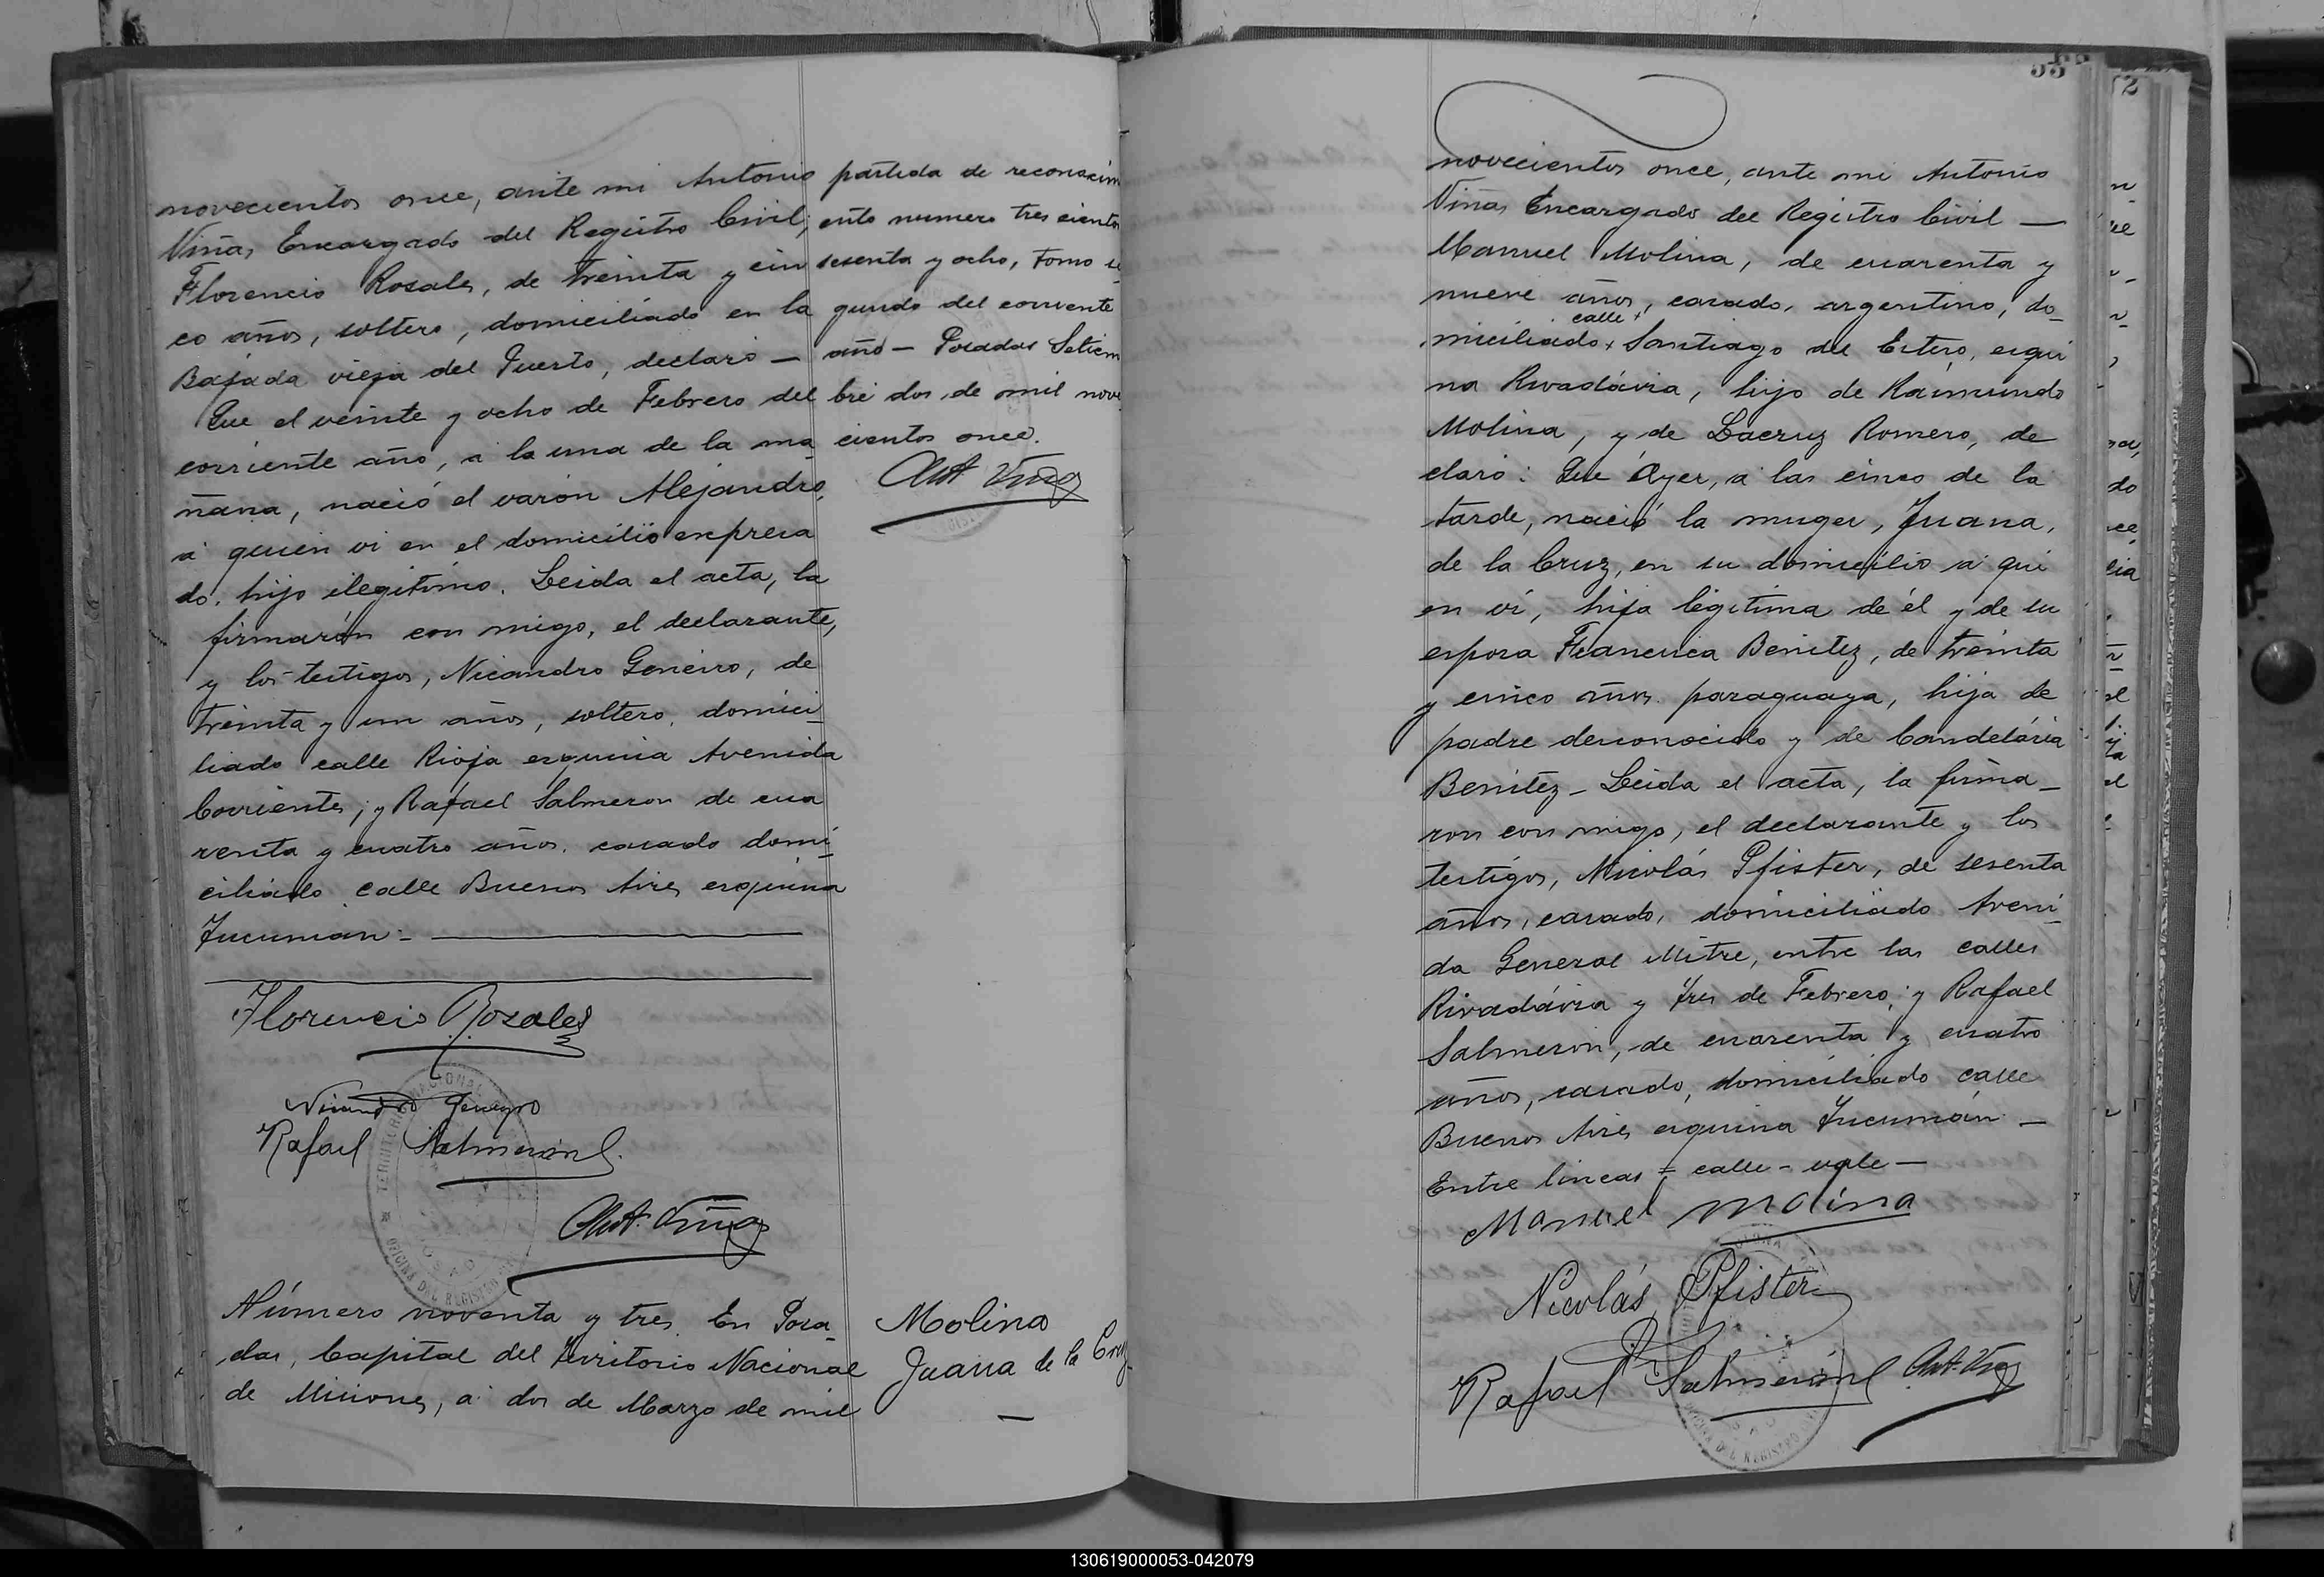 novecientos once, ante mi Antonio
Viñas Encargado del Registro Civil;
Florencio Rosales, de treinta y cin
co años, soltero, domiciliado en la
Bajada vieja del Puerto, declaró —
Que el veinte y ocho de Febrero del
corriente año, á la una de la ma
ñana, nació el varón Alejandro,
á quien vi en el domicilio expresa
do, hijo ilegitimo. Leida el acta, la
firmarón con migo, el declarante,
y los testigos, Nicandro Geneiro, de
treinta y un años, soltero, domici_
liado calle Rioja esquina Avenida
Corrientes; y Rafael Salmeron de cua
renta y cuatro años, casado domi_
ciliado calle Buenos Aires esquina
Tucumán -
Florencio Rosales
Rafael Salmerón
Ant. Viñas
partida de reconocim
ento numero tres cientos
sesenta y ocho, tomo se
gundo del corriente
año — Posadas Setiem
bre dos, de mil nove
cientos once.
Ant Viñas
Número noventa y tres. En Posa_
das, Capital del Territorio Nacional
de Misiones, á dos de Marzo de mil
Molina
Juana de la Cruz
—
novecientos once, ante mi Antonio
Viñas Encargado del Registro Civil —
Manuel Molina, de cuarenta y
nueve años, casado, argentino, do_
calle
miciliado Santiago del Estero, esqui
na Rivadávia, hijo de Raimundo
Molina, y de Lacruz Romero, de
claró: Que Ayer, á las cinco de la
tarde, nació la muger, Juana,
de la Cruz, en su domicilio á qui
en vi, hija legitima de él y de su
esposa Francisca Benitez, de treinta
y cinco años paraguaya, hija de
padre desconocido y de Candelária
Benitez - Leida el acta, la firma_
ron con migo, el declarante y los
testigos, Nicolás Pfister, de sesenta
años, casado, domiciliado Aveni_
da General Mitre, entre las calles
Rivadávia y tres de Febrero; y Rafael
Salmerón, de cuarenta y cuatro
años, casado, domiciliado calle
Buenos Aires esquina Tucumán —
Entre lineas = calle - vale —
Manuel Molina
Nicolás Pfister
Rafael Salmerón Ant. Viñas
130619000053-042079